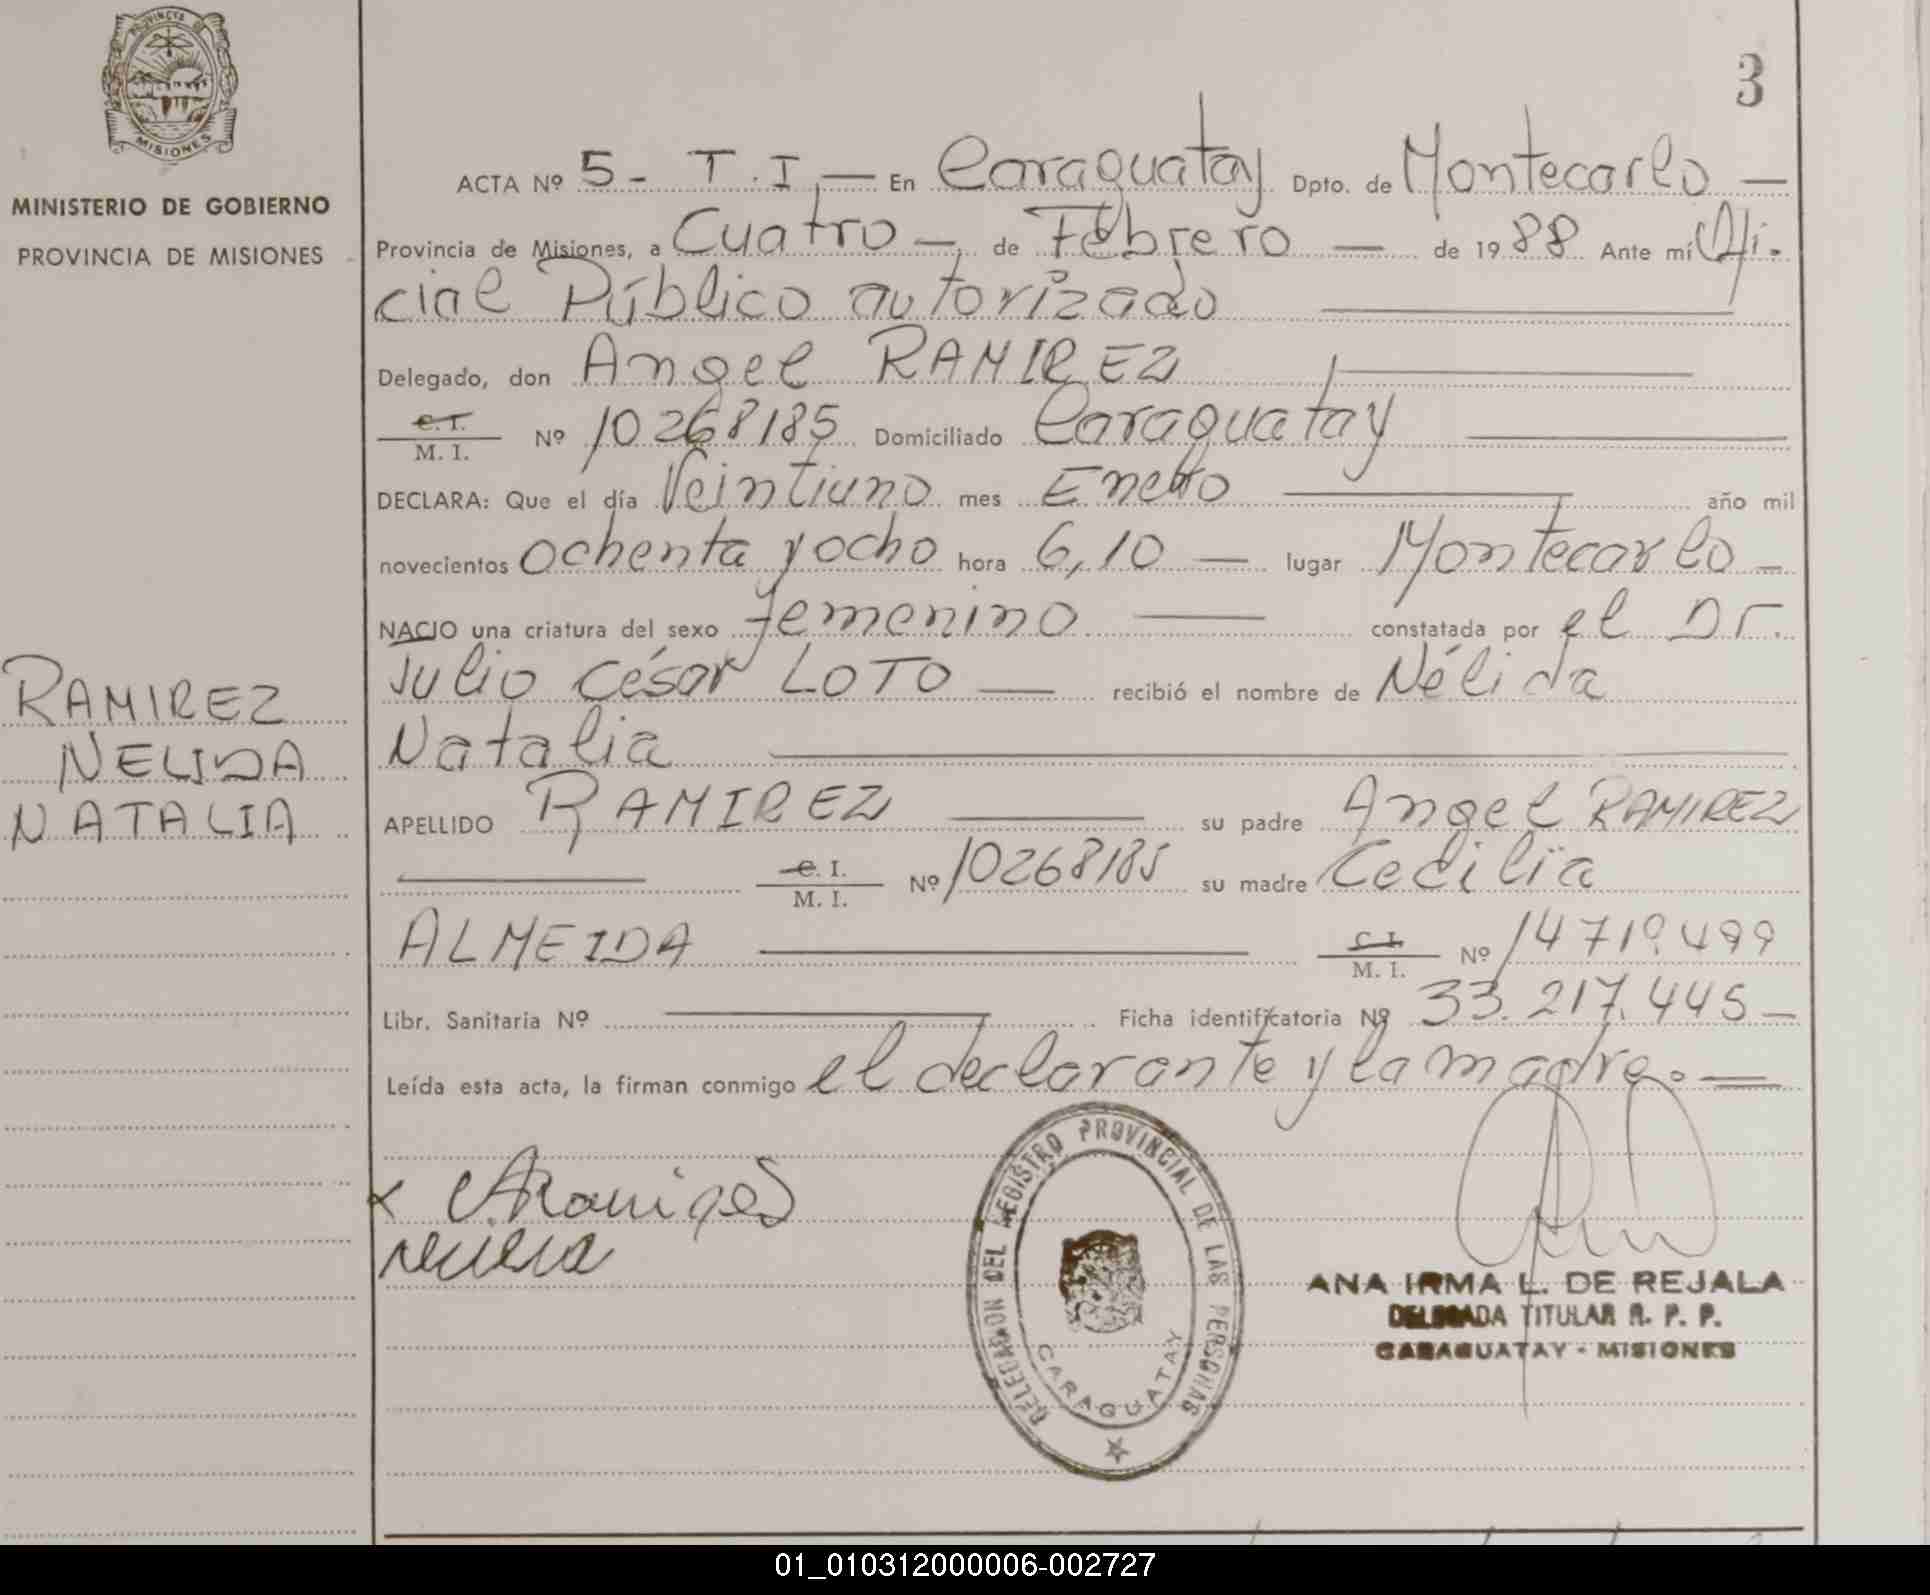 PROVINCIA DE
MISIONES
MINISTERIO DE GOBIERNO
PROVINCIA DE MISIONES
RAMIREZ
NELIDA
NATALIA
3
ACTA Nº 5 - T. I. — En Caraguatay Dpto. de Montecarlo —
Provincia de Misiones, a Cuatro — de Febrero — de 1988 Ante mí Ofi-
cial Público autorizado
Delegado, don Angel RAMIREZ
C. I.
M. I. Nº 10268185 Domiciliado Caraguatay
DECLARA: Que el día Veintiuno mes Enero año mil
novecientos ochenta y ocho hora 6,10 — lugar Montecarlo -
NACIO una criatura del sexo femenino — constatada por el Dr.
Julio César LOTO — recibió el nombre de Nélida
Natalia
APELLIDO RAMIREZ — su padre Angel RAMIREZ
— C. I.
M. I. Nº 10268185 su madre Cecilia
ALMEIDA — C. I.
M. I. Nº 14719.499
Libr. Sanitaria Nº — Ficha identificatoria Nº 33.217.445 -
Leída esta acta, la firman conmigo el declarante y la madre. —
DELEGACION DEL REGISTRO PROVINCIAL DE LAS PERSONAS
CARAGUATAY
ANA IRMA L. DE REJALA
DELEGADA TITULAR R. P. P.
CARAGUATAY - MISIONES
01_010312000006-002727